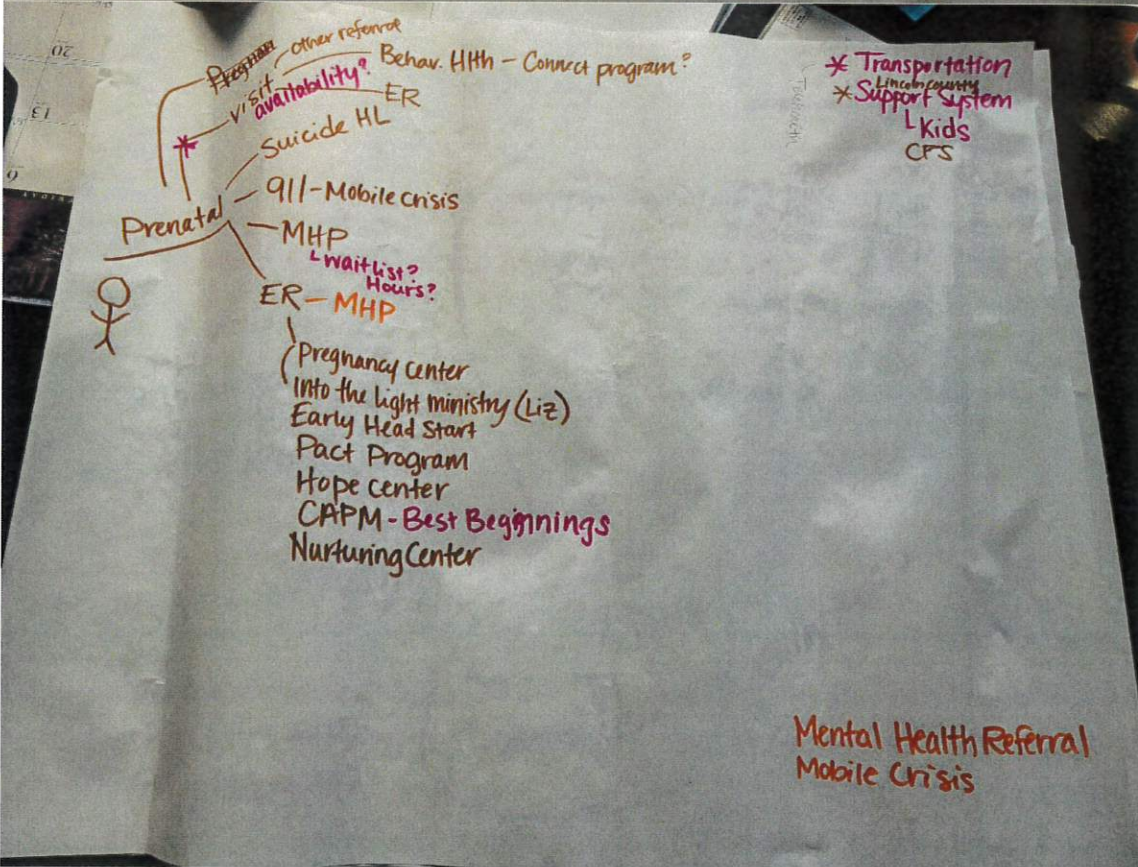 other referral
visit
availability?
Behav. Hlth - Connect program?
ER
Suicide HL
911 - Mobile crisis
Prenatal
MHP
Waitlist?
Hours?
ER - MHP
Pregnancy center
Into the Light ministry (Liz)
Early Head Start
Pact Program
Hope center
CAPM - Best Beginnings
Nurturing Center
* Transportation
Lincoln county
* Support System
Kids
CFS
Mental Health Referral
Mobile Crisis
20
13
6